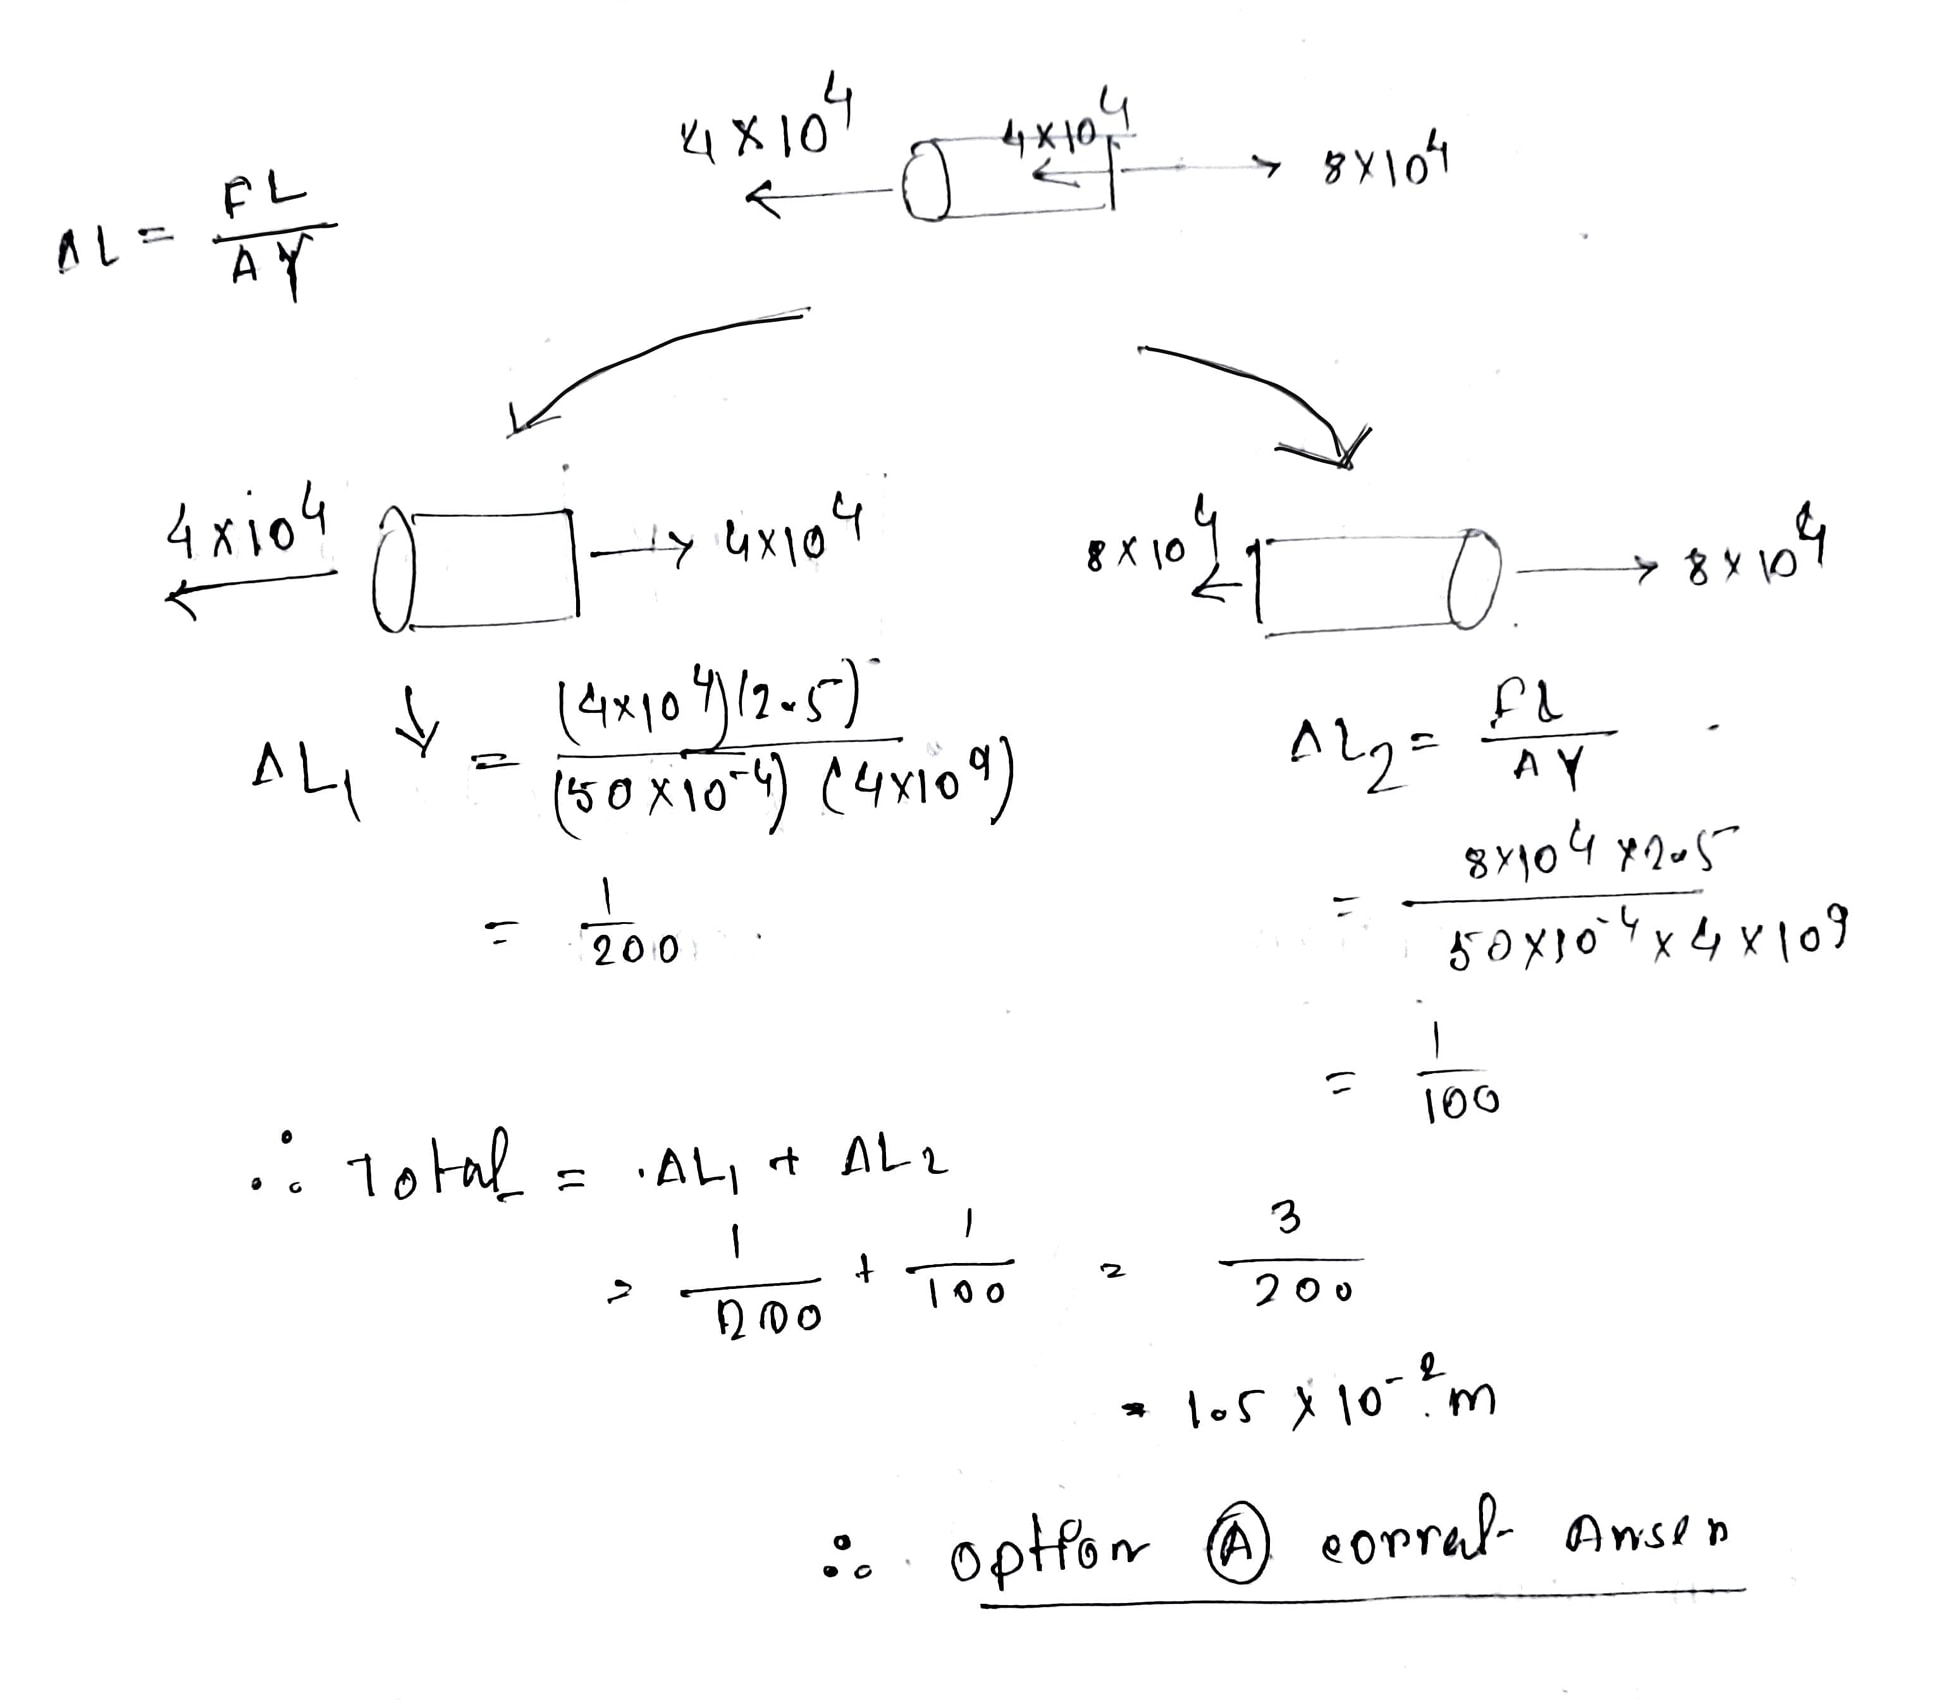 4×10⁴ 4×10⁴ 8×10⁴
ΔL = FL/AY
4×10⁴ 4×10⁴ 8×10⁴ 8×10⁴
ΔL₁ = (4×10⁴)(2.5)/(50×10⁻⁴)(4×10⁹)
= 1/200
ΔL₂ = FL/AY
= 8×10⁴×2.5/50×10⁻⁴×4×10⁹
= 1/100
∴ Total = ΔL₁ + ΔL₂
= 1/200 + 1/100 = 3/200
= 1.5×10⁻²m
∴ option Ⓐ correct